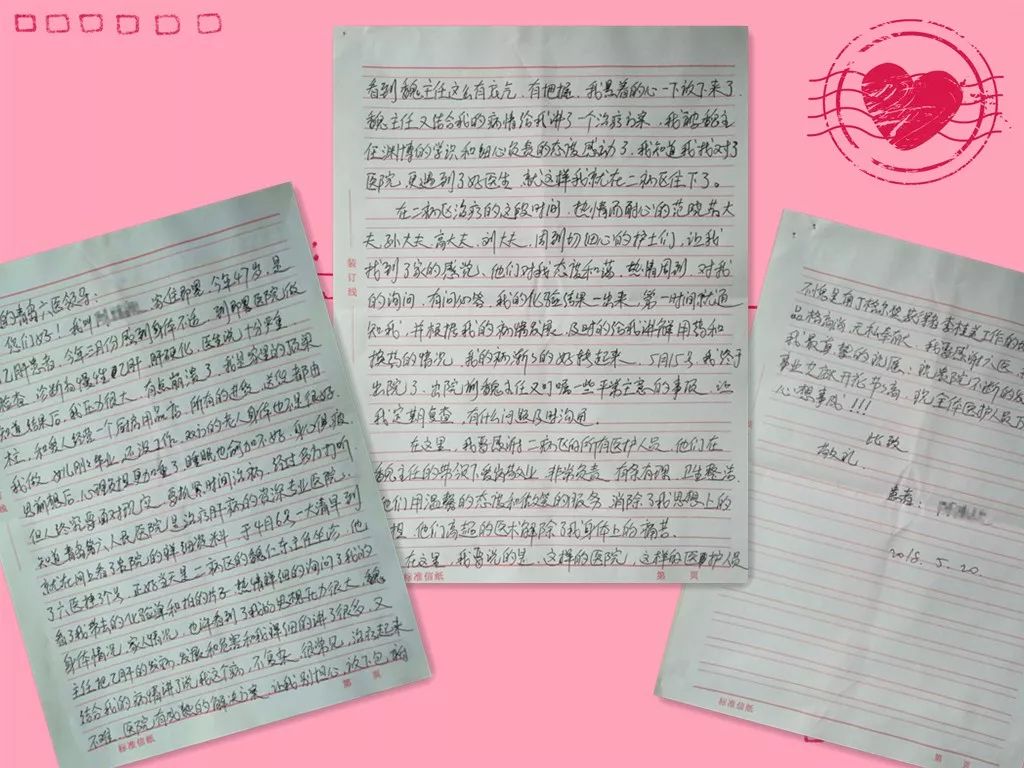 的青岛六医领导：
您们好！我叫 家住即墨，今年47岁，是
乙肝患者，今年三月份感到身体不适，到即墨医院做
检查，诊断为慢性乙肝，肝硬化，医生说十分严重，
知道结果后，我压力很大，有点崩溃了，我是家里的顶梁
柱，和爱人经营一个厨房用品店，所有的进货、送货都由
我做，女儿刚毕业，还没工作，双方的老人身体也不是很好，
思前想后，心理负担更加重了，睡眠也愈加不好，身心俱疲，
但人终究要面对现实，要抓紧时间治病，经过多方打听，
知道青岛第六人民医院是治疗肝病的资深专业医院，
就在网上看了贵院的详细资料，于4月6号一大清早到
了六医挂了个号，正好当天是二病区的魏仁东主任坐诊，他
看了我带去的化验单和拍的片子，热情详细的询问了我的
身体情况，家人情况，也许看到了我的思想压力很大，魏
主任把乙肝的发病、发展和危害和我详细的讲了很多，又
结合我的病情讲了说我这个病，不复杂，很常见，治疗起来
不难，医院有成熟的解决方案，让我别担心，放下包
标准信纸
第 页
看到魏主任这么有底气，有把握，我悬着的心一下放下来了
魏主任又结合我的病情给我讲了一个治疗方案，我被魏主
任渊博的学识和细心负责的态度感动了，我知道我找对了
医院，更遇到了好医生，就这样我就在二病区住下了。
在二病区治疗的这段时间，热情而耐心的范晓 大
夫、孙大夫、高大夫、刘大夫，周到切细心的护士们，让我
找到了家的感觉、他们对我态度和蔼，热情周到，对我
的询问，有问必答，我的化验结果一出来，第一时间就通
知我，并根据我的病情发展，及时的给我讲解用药和
换药的情况，我的病渐渐的好转起来，5月15号，我终于
出院了，出院前魏主任又叮嘱一些平常注意的事项，让
我定期复查，有什么问题及时沟通。
在这里，我要感谢二病区的所有医护人员，他们在
魏主任的带领下爱岗敬业，非常负责，有条有理，卫生整洁，
他们用温馨的态度和 的服务，消除了我思想上的
，他们高超的医术解除了我身体上的痛苦。
在这里，我要说的是，这样的医院，这样的医护人员
装订线
标准信纸
第 页
不愧是有了
品格高尚，无私奉献，我要感谢六医
我最真挚的祝愿，祝贵院不断的发
事业更放开花节高，祝全体医护人员
心想事成！！！
此致
敬礼
患者：
2018.5.20.
标准信纸
第 页